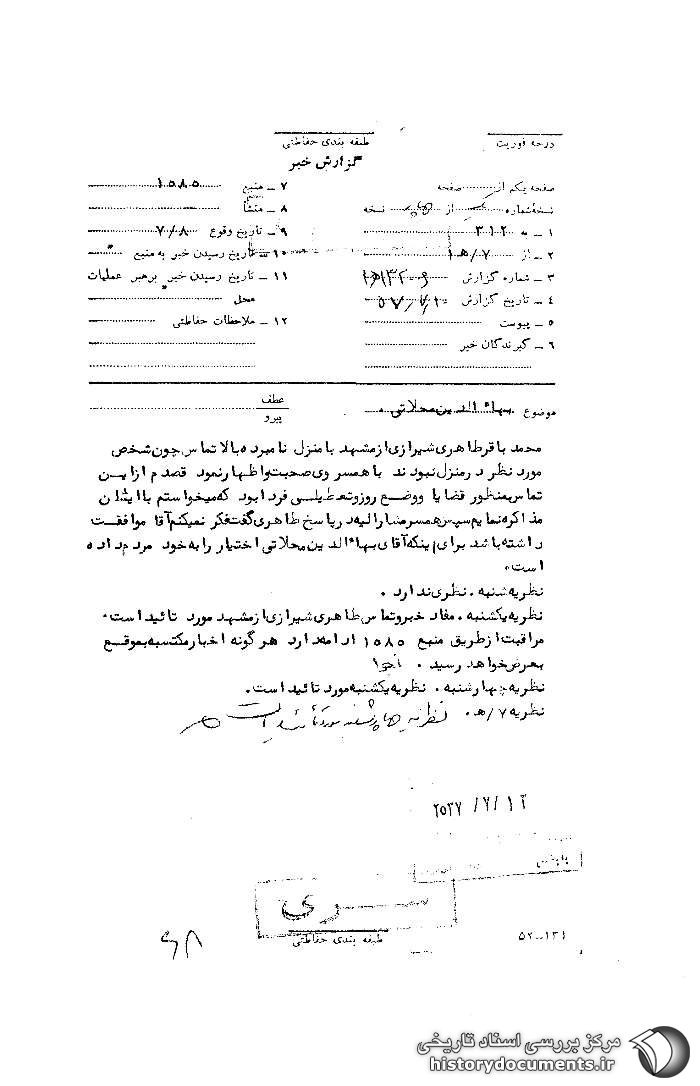 درجه فوریت
طبقه بندی حفاظتی
گزارش خبر
صفحه یکم از صفحه
نسخهٔشماره از نسخه
۱ ــ به ۳۱۲
۲ ــ از ۷/ه۱
۳ ــ شماره گزارش
۴ ــ تاریخ گزارش
۵ ــ پیوست
۶ ــ گیرندگان خبر
۷ ــ منبع ۱۵۸۵
۸ ــ منشأ
۹ ــ تاریخ وقوع ۷/۸
۱۰ ــ تاریخ رسیدن خبر به منبع
۱۱ ــ تاریخ رسیدن خبر برهبر عملیات
محل
۱۲ ــ ملاحظات حفاظتی
موضوع بهاءالدین محلاتی.
عطف
پیرو
محمد باقر طاهری شیرازی از مشهد با منزل نامبرده بالا تماس چون شخص
مورد نظر در منزل نبودند با همسر وی صحبت و اظهار نمود قصدم از این
تماس بمنظور قضایا و وضع روز و تعطیلی فردا بود که میخواستم با ایشان
مذاکره نمایم سپس همسر مشارالیه در پاسخ طاهری گفت فکر نمیکنم آقا موافقت
داشته باشد برای اینکه آقای بهاءالدین محلاتی اختیار را به خود مردم داده
است.
نظریه شنبه . نظری ندارد .
نظریه یکشنبه . مفاد خبر و تماس طاهری شیرازی از مشهد مورد تائید است.
مراقبت از طریق منبع ۱۵۸۵ ادامه دارد هر گونه اخبار مکتسبه بموقع
بعرض خواهد رسید .
نظریه چهارشنبه . نظریه یکشنبه مورد تائید است.
نظریه ۷/ه. نظریه چهارشنبه مورد تائید است
۲۵۳۷/۷/۱۲
بایگانی
ســـری
طبقه بندی حفاظتی
۵۲ــ۱۳۱
مرکز بررسی اسناد تاریخی
historydocuments.ir